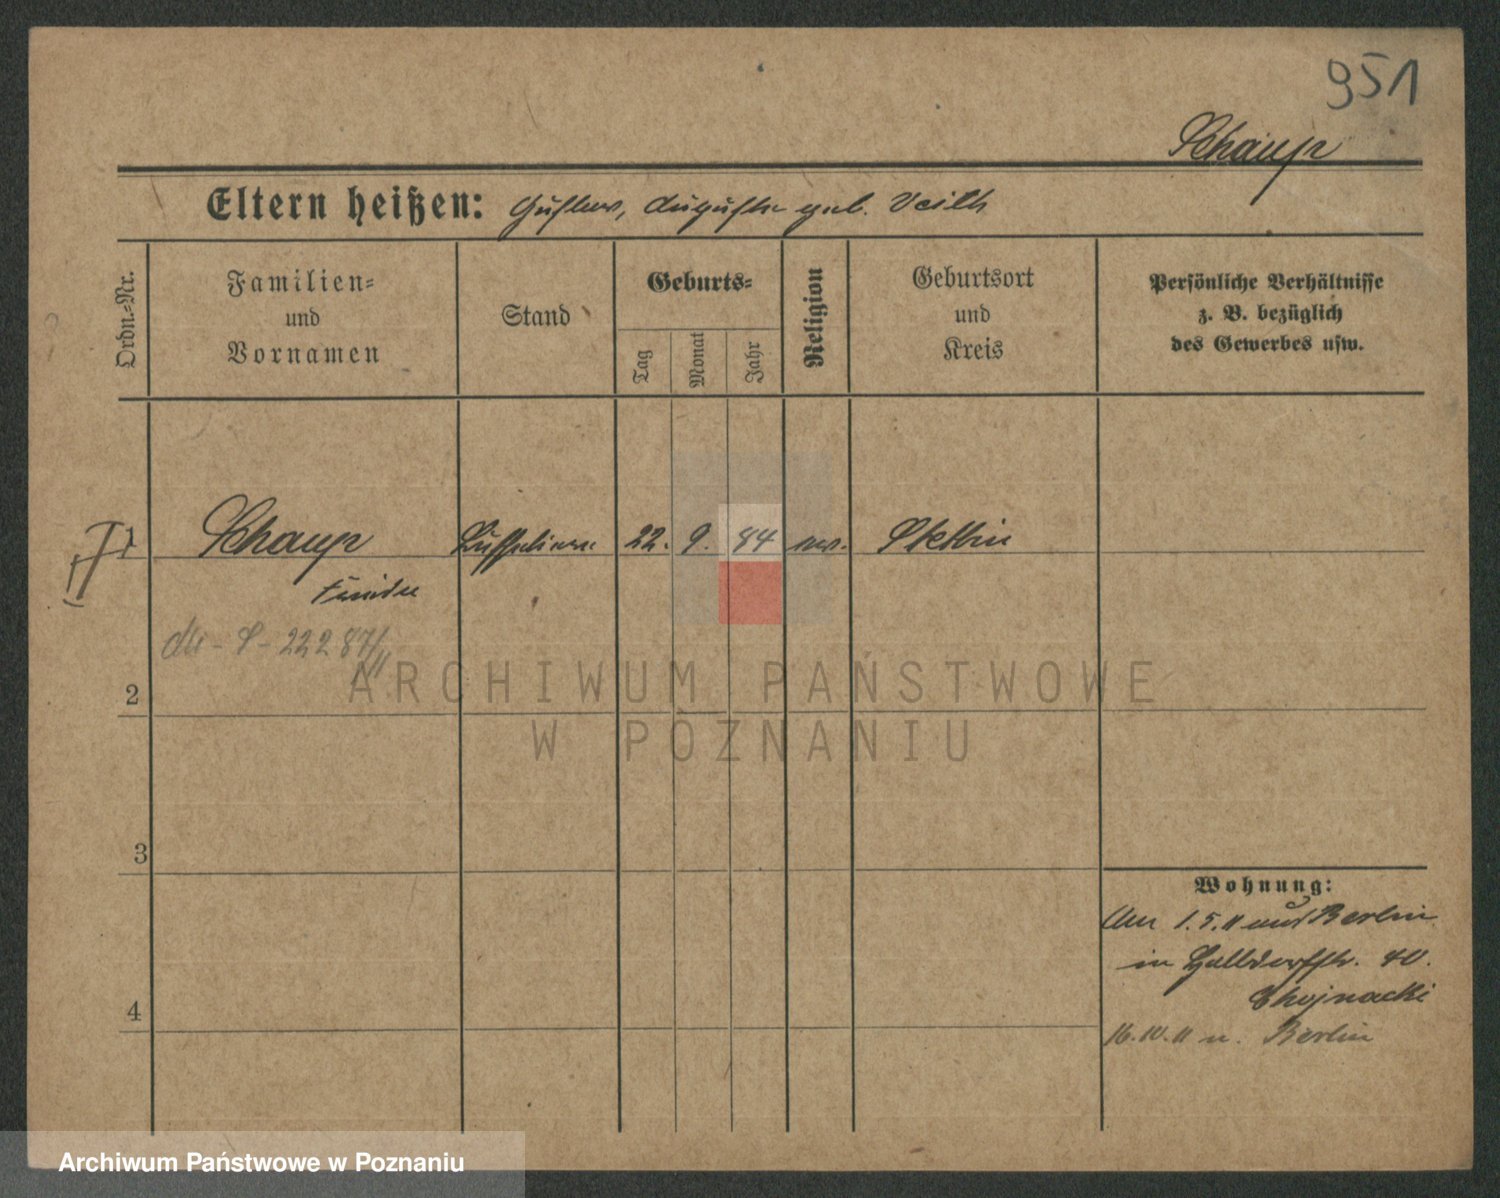 951
Schaup
Eltern heißen: Gustav, Auguste geb. Veith
Ordn.-Nr.
Familien-
und
Vornamen
Stand
Geburts-
Tag
Monat
Jahr
Religion
Geburtsort
und
Kreis
Persönliche Verhältnisse
z. B. bezüglich
des Gewerbes usw.
1 Schaup 22. 9. 84 ev. Stettin
2
3
4
Wohnung:
Am 1.5.11 aus Berlin
in 40.
Chojnacki
16.10.11 n. Berlin
ARCHIWUM PAŃSTWOWE
W POZNANIU
Archiwum Państwowe w Poznaniu